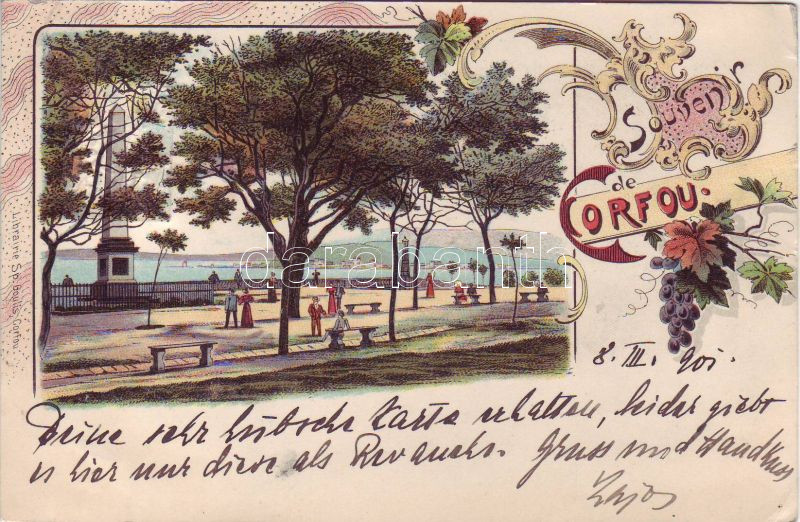 Souvenir
de
CORFOU.
Librairie Sp. Corfou.
darabanth
8. III. 901.
Deine sehr hübsche Karte erhalten, leider giebt
es hier nur diese als Revanche. Gruss und Handkuss
Lajos